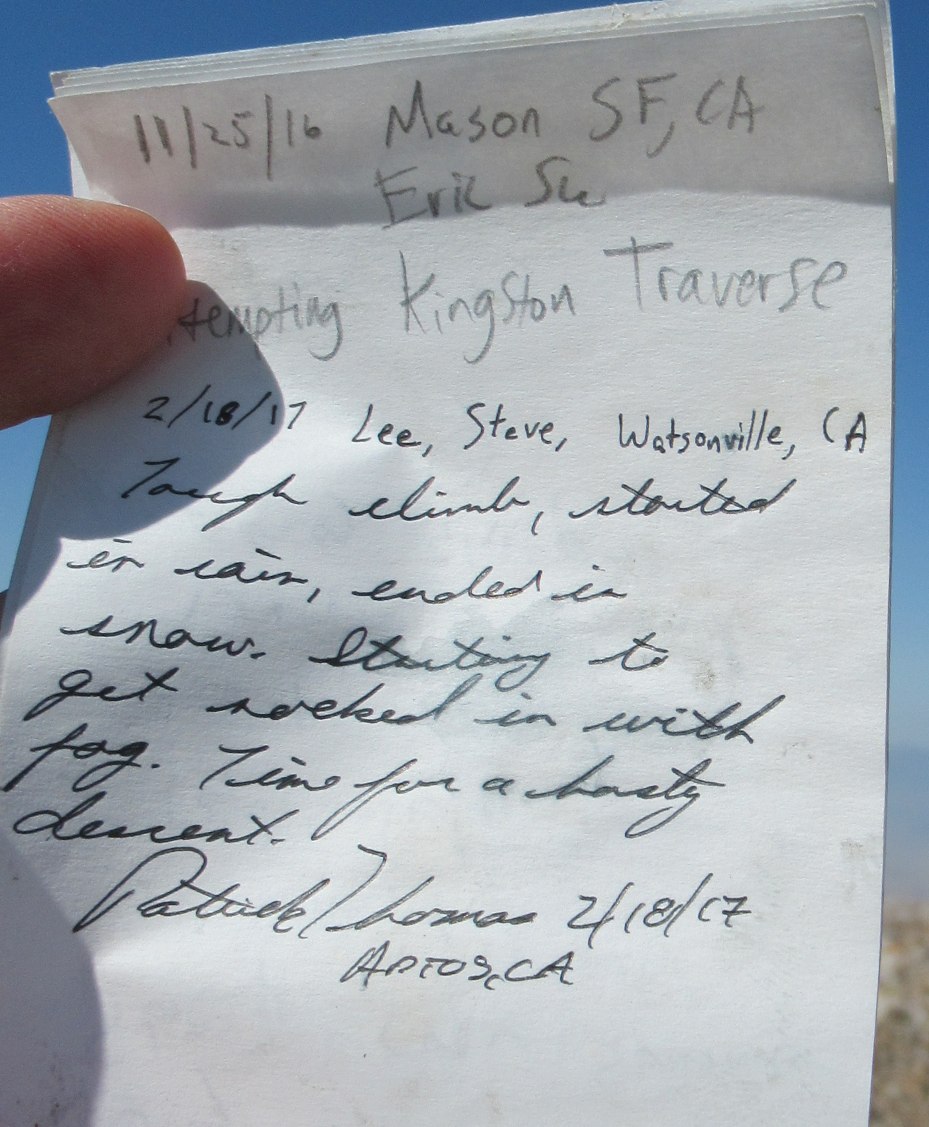 11/25/16 Mason SF, CA
Eric Su
tempting Kingston Traverse
2/18/17 Lee, Steve, Watsonville, CA
Tough climb, started
in rain, ended in
snow. Starting to
get socked in with
fog. Time for a hasty
descent.
Patrick Thomas 2/18/17
APTOS, CA